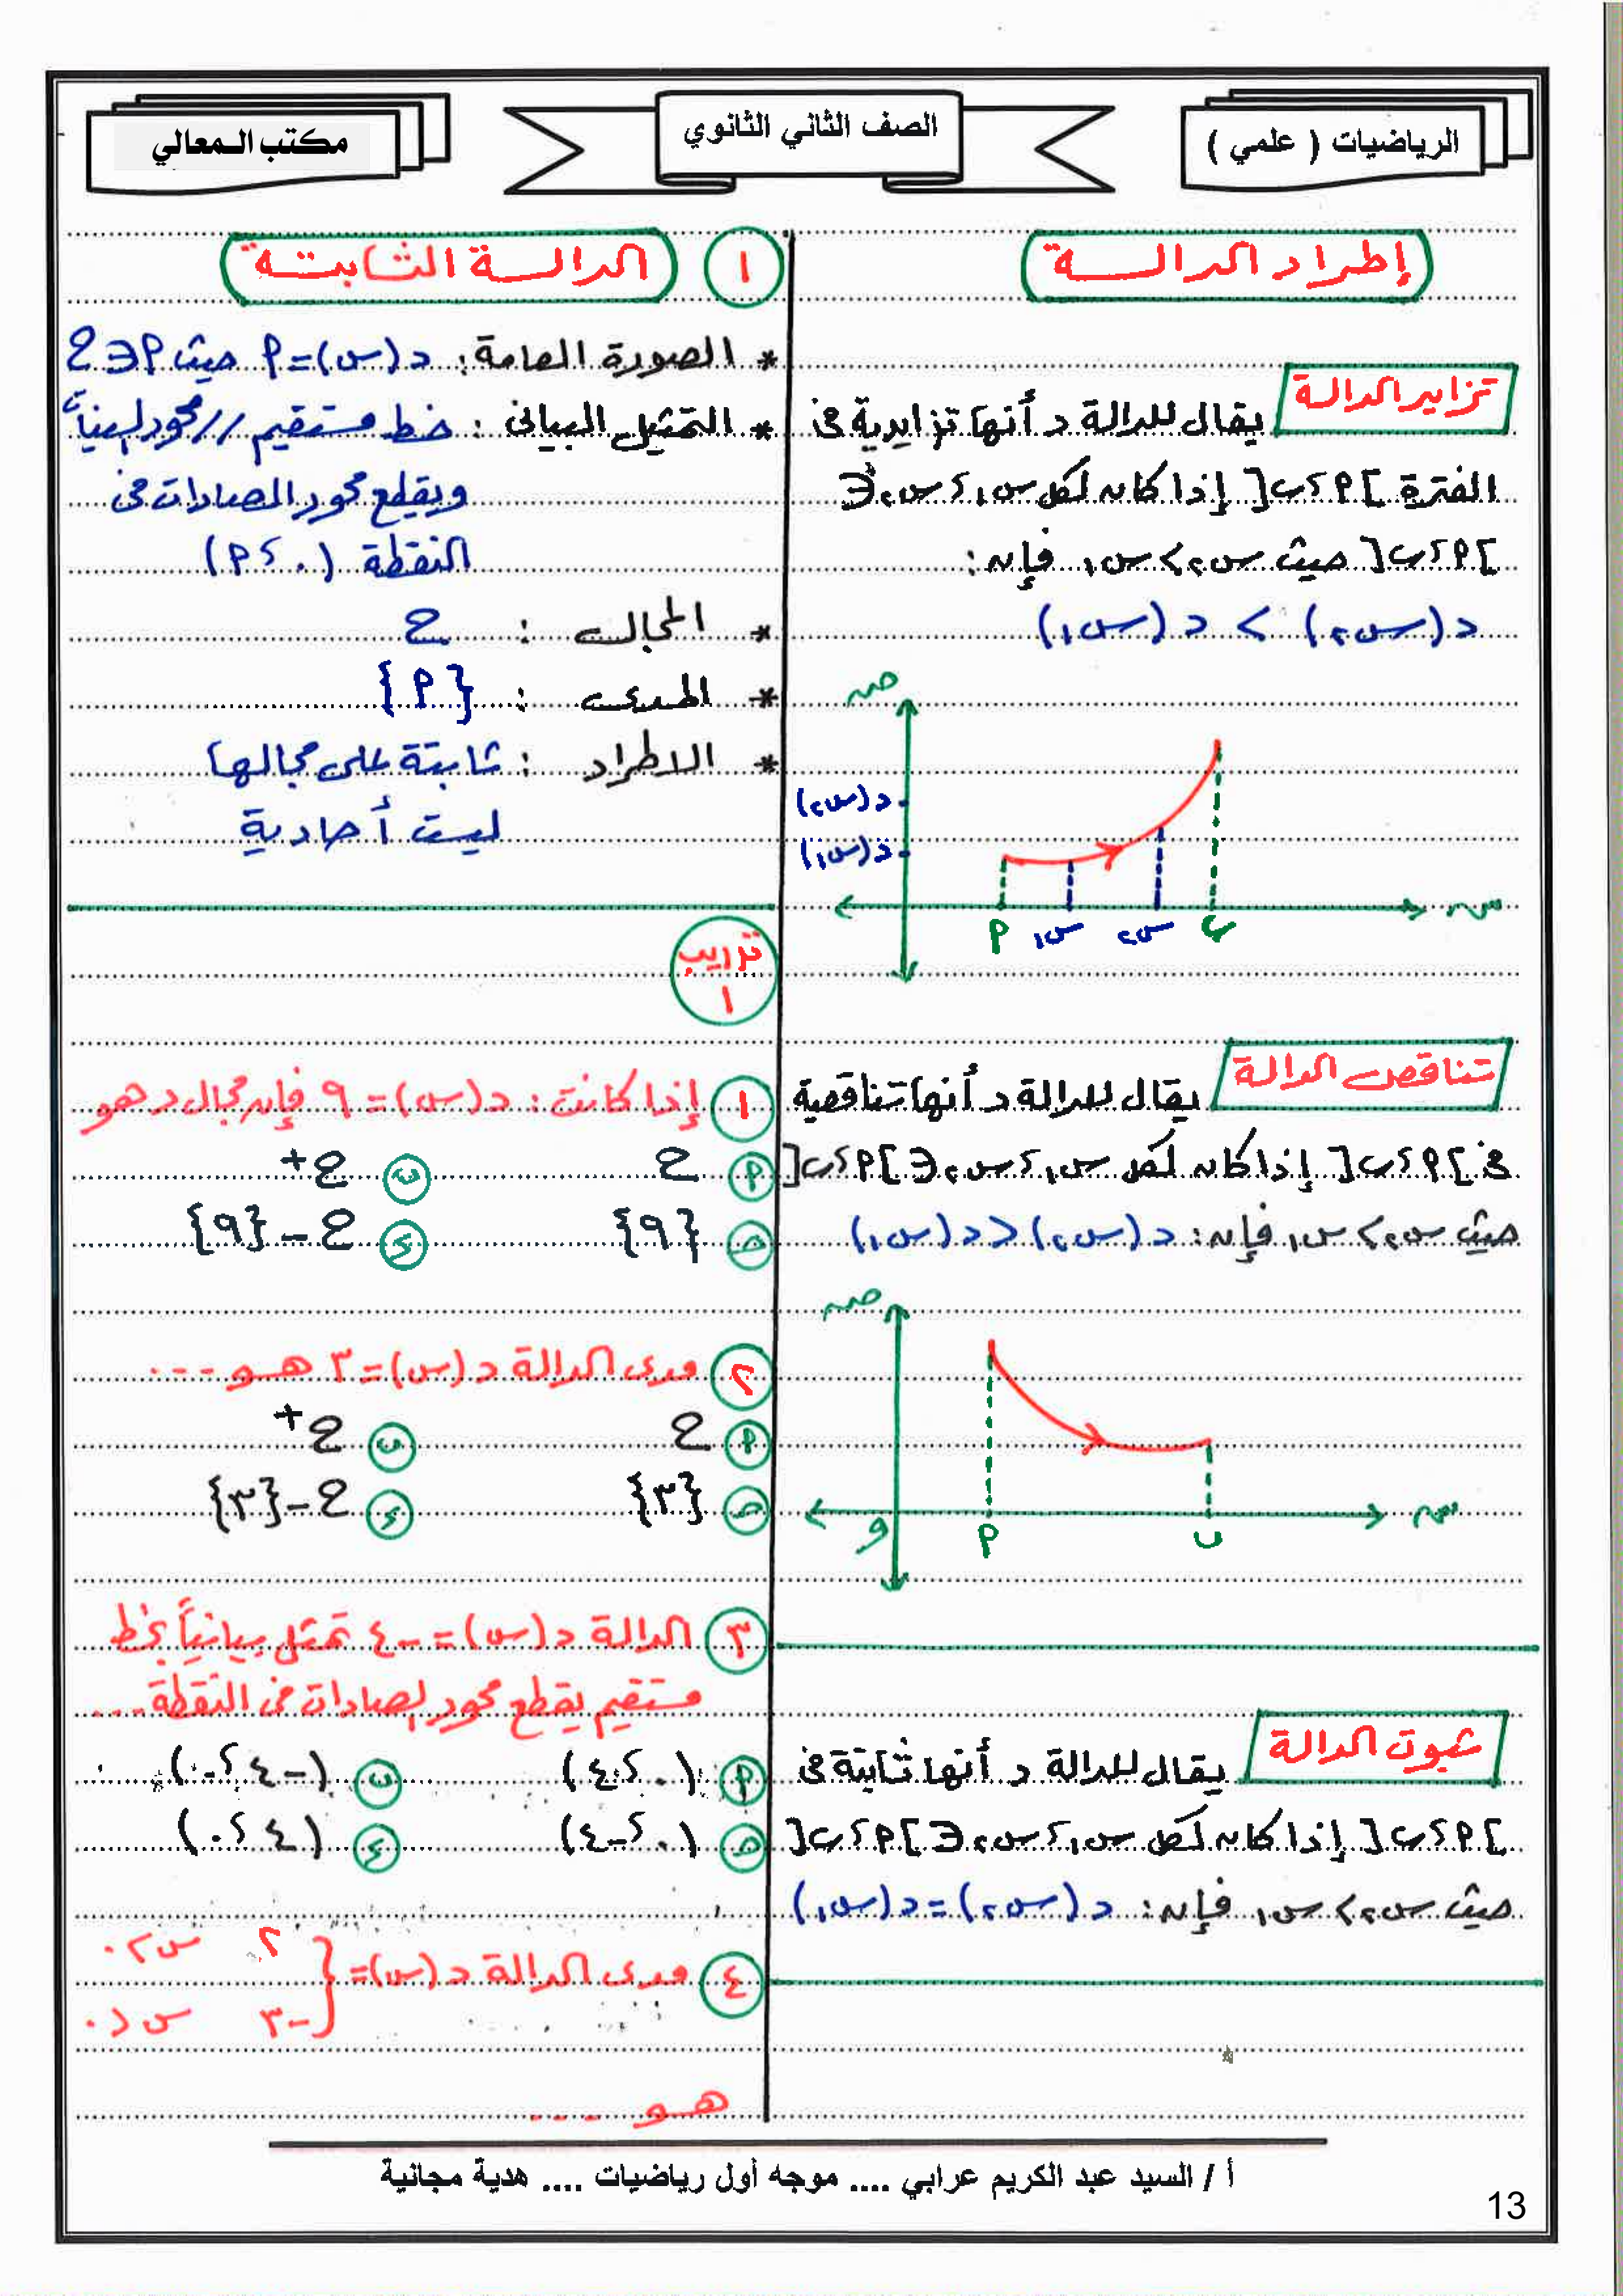 الرياضيات ( علمي )
الصف الثاني الثانوي
مكتب المعالي
إطراد الدالة
تزايد الدالة
يقال للدالة د أنها تزايدية فى
الفترة ]P ، ب[ إذا كان لكل س₁ ، س₂ ∈
]P ، ب[ حيث س₂ > س₁ فإن :
د (س₂) > د (س₁)
صـ
د(س₂)
د(س₁)
P س₁ س₂ ب
سـ
تناقص الدالة
يقال للدالة د أنها تناقصية
فى ]P ، ب[ إذا كان لكل س₁ ، س₂ ∈ ]P ، ب[
حيث س₂ > س₁ فإن : د (س₂) < د (س₁)
صـ
و P ب
سـ
ثبوت الدالة
يقال للدالة د أنها ثابتة فى
]P ، ب[ إذا كان لكل س₁ ، س₂ ∈ ]P ، ب[
حيث س₂ > س₁ فإن : د (س₂) = د (س₁)
١ الدالة الثابتة
* الصورة العامة : د (س) = P حيث P ∈ ح
* التمثيل البيانى : خط مستقيم // محور السينات
ويقطع محور الصادات فى
النقطة (٠ ، P)
* المجال : ح
* المدى : {P}
* الاطراد : ثابتة على مجالها
ليست أحادية
تدريب
١
١ إذا كانت : د (س) = ٩ فإن مجال د هو
P ح
ب ح+
حـ {٩}
ء ح - {٩}
٢ مدى الدالة د (س) = ٣ هو ...
P ح
ب ح+
حـ {٣}
ء ح - {٣}
٣ الدالة د (س) = -٤ تمثل بيانياً بخط
مستقيم يقطع محور الصادات فى النقطة ...
P (٠ ، ٤)
ب (-٤ ، ٠)
حـ (٠ ، -٤)
ء (٤ ، ٠)
٤ مدى الدالة د (س) = {
٢ س > ٠
-٣ س < ٠
هو ...
أ / السيد عبد الكريم عرابي .... موجه أول رياضيات .... هدية مجانية
13